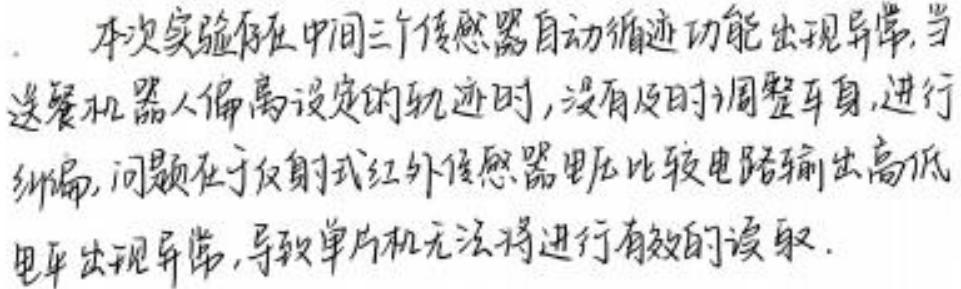 本次实验存在中间三个传感器自动循迹功能出现异常,当
送餐机器人偏离设定的轨迹时,没有及时调整车身,进行
纠偏,问题在于反射式红外传感器电压比较电路输出高低
电平出现异常,导致单片机无法将进行有效的读取.